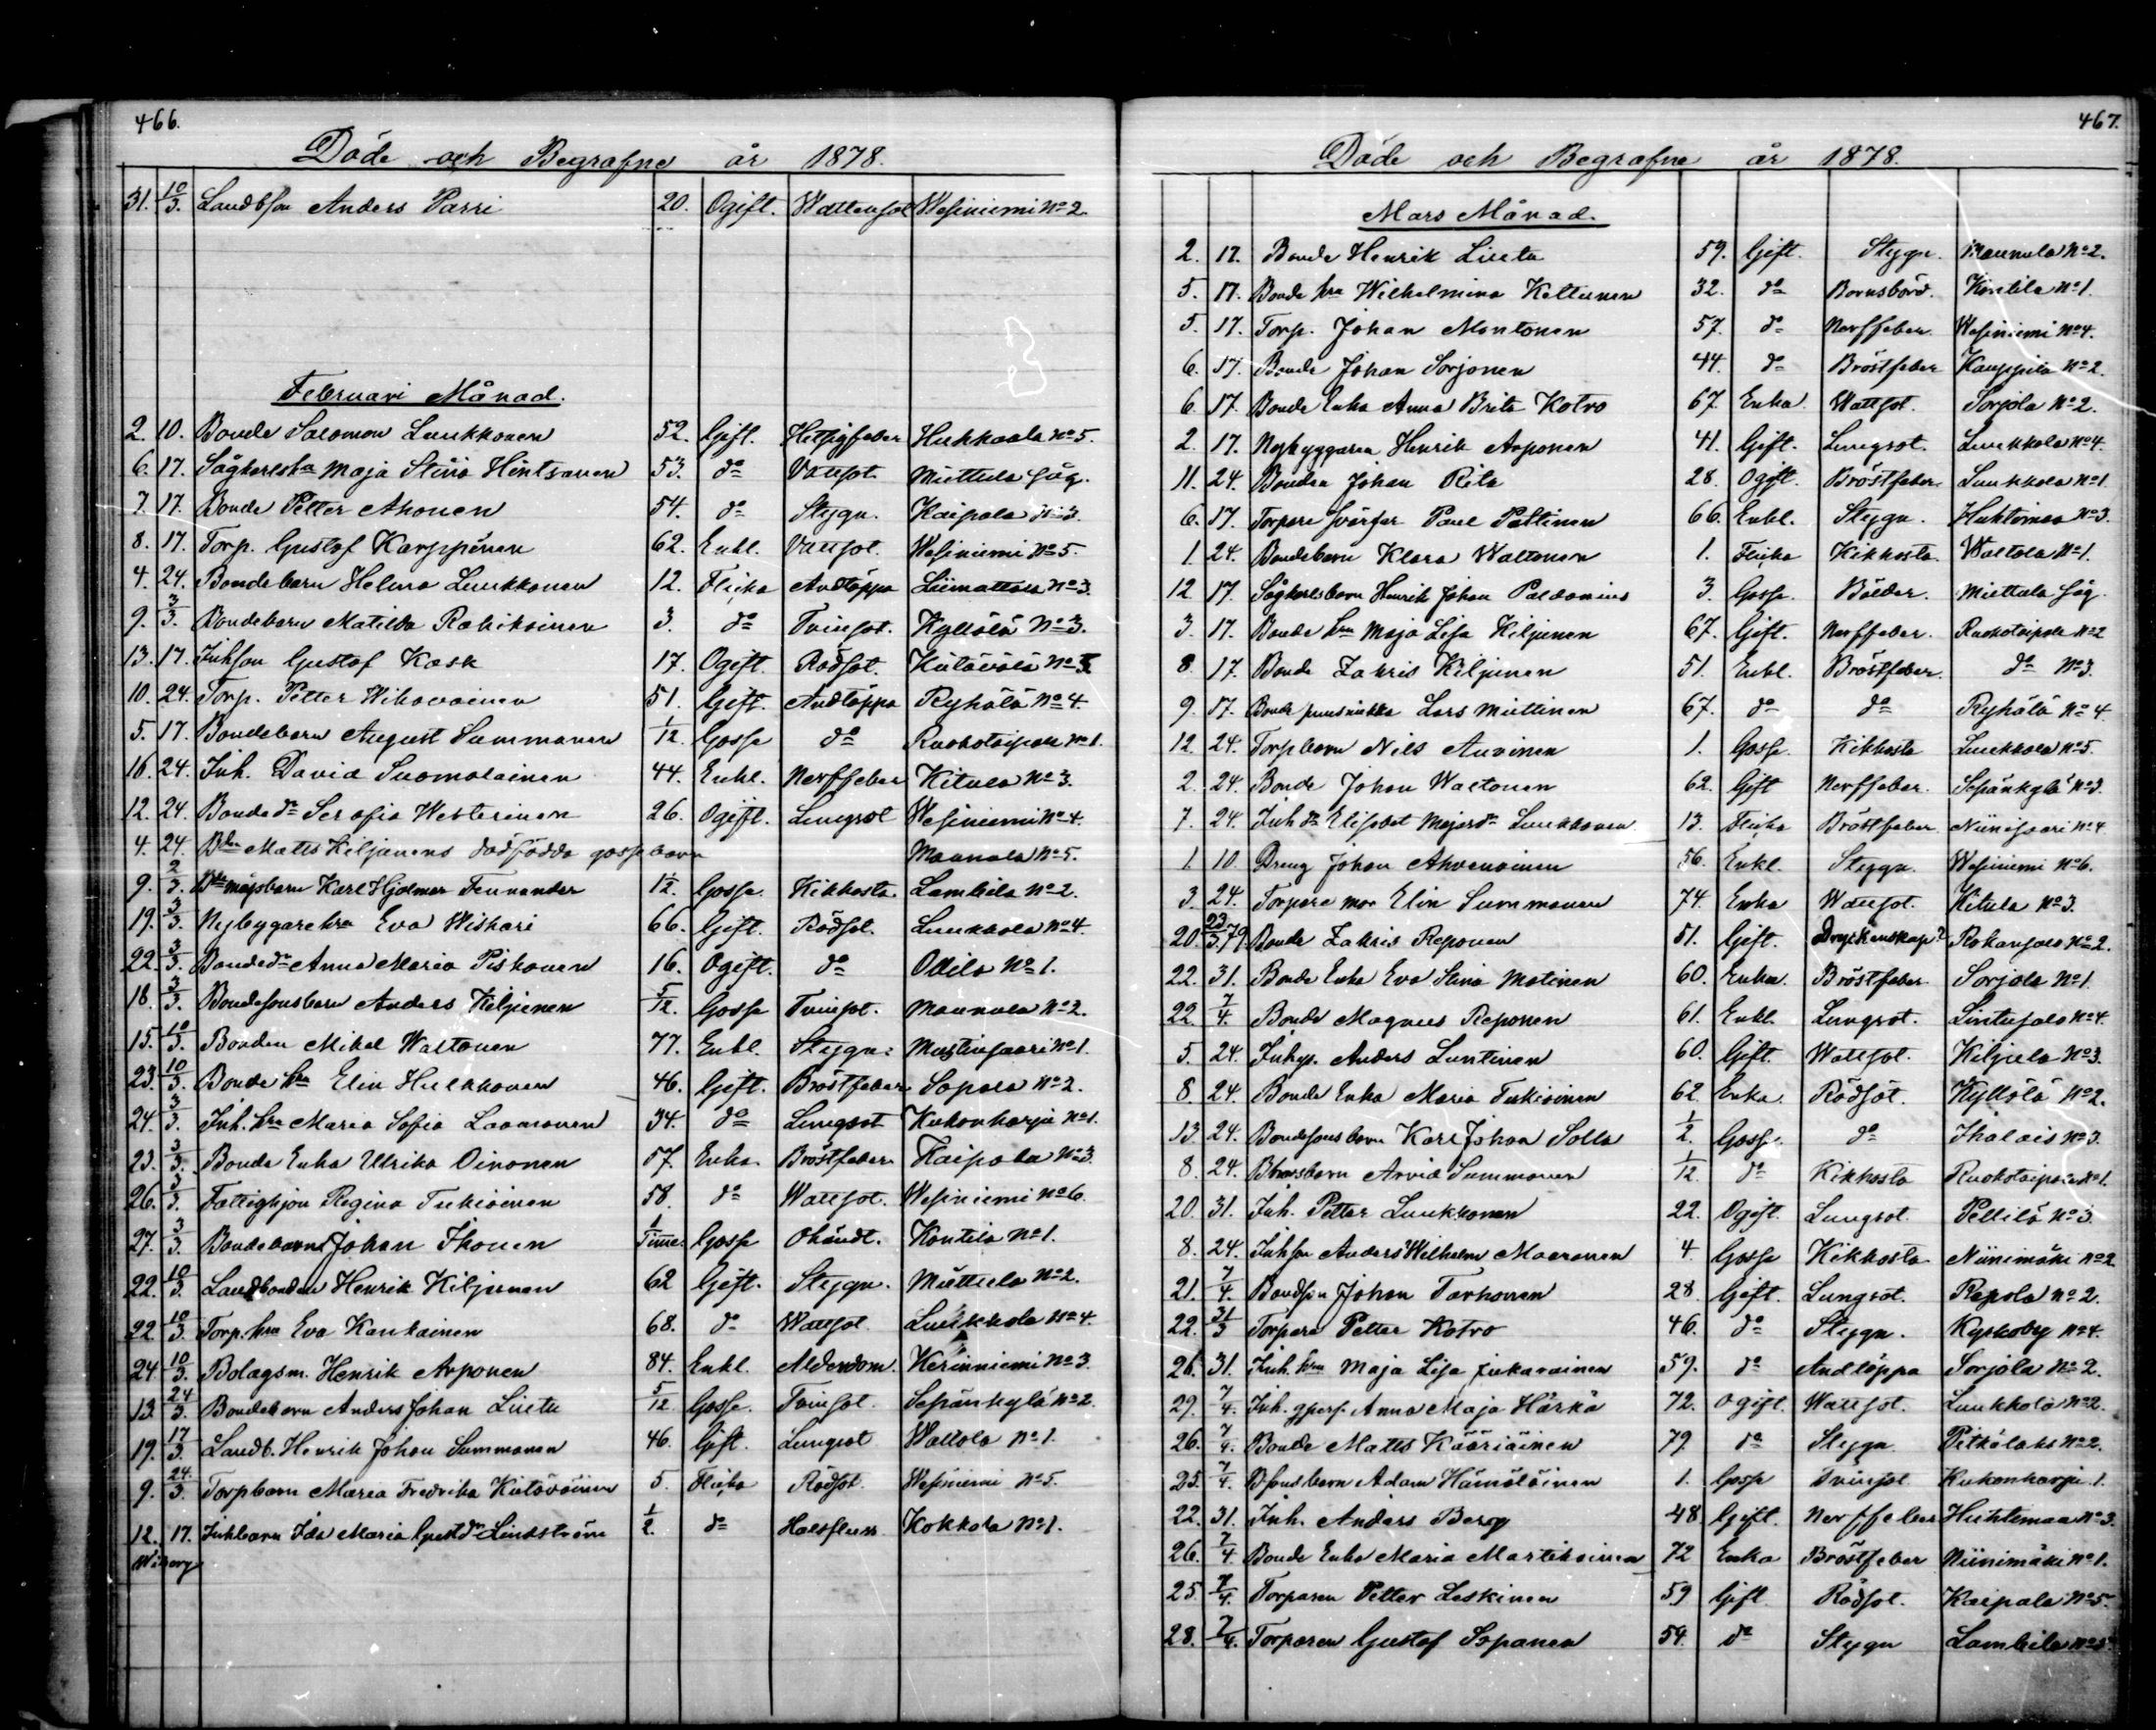 466.
Döde och Begrafne år 1878.
31. 10/3. Landbson Anders Parri 20. Ogift. Wattensot Wesiniemi No 2.
Februari Månad.
2. 10. Bonde Salomon Luukkonen 52. Gift. Hettsigfeber Hukkaala No 5.
6. 17. Sågkarlshu Maja Stina Hintsanen 53. do Vattsot Miettula såg.
7. 17. Bonde Petter Ahonen 54. do Stygn. Kaipola No 3.
8. 17. Torp. Gustaf Karppinen 62. Enkl. Vattsot. Wesiniemi No 5.
4. 24. Bondebarn Helena Luukkonen 12. Flicka Andtäppa Liimattala No 3.
9. 3/3. Bondebarn Matilda Rahikainen 3. do Tvinsot. Kyllölä No 3.
13. 17. Inhson Gustaf Kask 17. Ogift. Rödsot. Kiitävälä No 3.
10. 24. Torp. Petter Wihavainen 51. Gift. Andtäppa Ryhälä No 4.
5. 17. Bondebarn August Summanen 1/12 Gosse do Ruokotaipale No 1.
16. 24. Inh. David Suomalainen 44. Enkl. Nerffeber Kitula No 3.
12. 24. Bonde dr Serafia Westerinen 26. Ogift. Lungsot Wesiniemi No 4.
4. 24. Bdn Matts Kiljunens dödfödda gossebarn Mannala No 5.
9. 2/3. Karl Hjalmar Fennander 1/2. Gosse. Kikhosta Lambila No 2.
19. 3/3. Nybyggare hru Eva Wiskari 66. Gift. Rödsot. Luukkola No 4.
22. 3/3. Bonde dr Anna Maria Piskonen 16. Ogift. do Ollila No 1.
18. 3/3. Bondesonsbarn Anders Kiljunen 5/12. Gosse Tvinsot. Mannala No 2.
15. 10/3. Bonden Mikel Waltonen 77. Enkl. Stygn. Mustinsaari No 1.
23. 10/3. Bonde hru Elin Hulkkonen 46. Gift. Bröstfeber Sopala No 2.
24. 3/3. Inh. hru Maria Sofia Laamanen 34. do Lungsot Kukonharju No 1.
23. 3/3. Bonde Enka Ulrika Oinonen 57. Enka Bröstfeber Kaipola No 3.
26. 3/3. Fattighjon Regina Tukiainen 58. do Wattsot. Wesiniemi No 6.
27. 3/3. Bondebarnet Johan Ihonen 1 Timme Gosse Okändt. Kontila No 1.
22. 10/3. Landbonden Henrik Kiljunen 62 Gift. Stygn. Miettula No 2.
22 10/3. Torp. hru Eva Kaukainen 68. do Wattsot Luukkola No 4.
24 10/3. Bolagsm. Henrik Arponen 84. Enkl. Ålderdom. Kerinniemi No 3.
13. 24/3. Bondebarn Anders Johan Liuta 5/12 Gosse. Tvinsot. Sepänkylä No 2.
19. 17/3 Landb. Henrik Johan Summanen 46. Gift. Lungsot Waltola No 1.
9. 24/3. Torpbarn Maria Fredrika Kiitäväinen 5. Flicka Rödsot. Wesiniemi No 5.
12. 17. Inhbarn Ida Maria Gustdr Lindström 1/2. do Halsfluss Kokkola No 1.
Wiborg
467.
Döde och Begrafne år 1878.
Mars Månad.
2. 17. Bonde Henrik Liuta 59. Gift. Stygn. Mannala No 2.
5. 17. Bonde hru Wilhelmina Keltunen 32. do Barnsbörd. Kontila No 1.
5. 17. Torp. Johan Montonen 57. do Nerffeber. Wesiniemi No 4.
6. 17. Bonde Johan Sorjonen 44. do Bröstfeber Kauppila No 2.
6. 17. Bonde Enka Anna Brita Kotro 67. Enka Wattsot. Sorjola No 2.
2. 17. Nybyggaren Henrik Arponen 41. Gift. Lungsot. Luukkola No 4.
11. 24. Bonden Johan Rita 28. Ogift. Bröstfeber. Luukkola No 1
6. 17. Torpare svärfar Paul Paltinen 66. Enkl. Stygn. Huhtimaa No 3.
1. 24. Bondebarn Klara Waltonen 1. Flicka Kikhosta. Waltola No 1.
12 17. Sågkarlsbarn Henrik Johan Paldanius 3. Gosse. Bölder. Miettala såg.
3. 17. Bonde hru Maja Lisa Kiljunen 67. Gift. Nerffeber. Ruokotaipale No 2
8. 17. Bonde Zakris Kiljunen 51. Enkl. Bröstfeber. do No 3.
9. 17. Bonde Lars Miettinen 67. do do Ryhälä No 4.
12. 24. Torpbarn Nils Auvinen 1. Gosse. Kikhosta Luukkola No 5.
2. 24. Bonde Johan Waltonen 62. Gift Nerffeber. Sepänkylä No 3.
7. 24. Inh dr Elisabet Majasdr Luukkonen 13. Flicka Bröstfeber. Niinisaari No 4
1. 10. Dreng Johan Ahvenainen 56. Enkl. Stygn. Wesiniemi No 6.
3. 24. Torpare mor Elin Summanen 74. Enka Wattsot. Kitula No 3.
20. 23/3.79. Bonde Zakris Reponen 51. Gift. Dryckenskap? Rokansalo No 2.
22. 31. Bonde Enka Eva Stina Matinen 60. Enka. Bröstfeber Sorjola No 1
22. 7/4. Bonde Magnus Reponen 61. Enkl. Lungsot. Lintusalo No 4.
5. 24. Inhys. Anders Luntinen 60. Gift. Wattsot. Kiljula No 3.
8. 24. Bonde Enka Maria Tukiainen 62. Enka Rödsot. Kyllölä No 2.
13. 24. Bondesonsbarn Karl Johan Solla 1/2. Gosse. do Ihalais No 3.
8. 24. Arvid Summanen 1/12 do Kikhosta Ruokotaipale No 1.
20. 31. Inh. Petter Luukkonen 22. Ogift. Lungsot. Pellilä No 3.
8. 24. Inhson Anders Wilhelm Maaranen 4 Gosse Kikhosta Niinimäki No 2
21. 7/4. Bondson Johan Tarhonen 28. Gift. Lungsot. Repola No 2.
22. 31/3 Torpare Petter Kotro 46. do Stygn. Kyrkoby No 4.
26. 31. Inh. hru Maja Lisa Jukarainen 59. do Andtäppa Sorjola No 2.
29. 7/4. Inh. Anna Maja Härkä 72. Ogift. Wattsot. Luukkola No 2.
26. 7/4. Bonde Matts Kääriäinen 79. do Stygn Pitkälaks No 2.
25. 7/4. Bsonsbarn Adam Hämäläinen 1. Gosse Tvinsot Kukonharju 1.
22. 31. Inh. Anders Berg 48. Gift. Nerffeber Huhtimaa No 3.
26. 7/4 Bonde Enka Maria Martikainen 72 Enka Bröstfeber Niinimäki No 1.
25. 7/4. Torparen Petter Leskinen 59 Gift. Rödsot. Kaipola No 5.
28. 7/4. Torparen Gustaf Sopanen 54. do Stygn Lambila